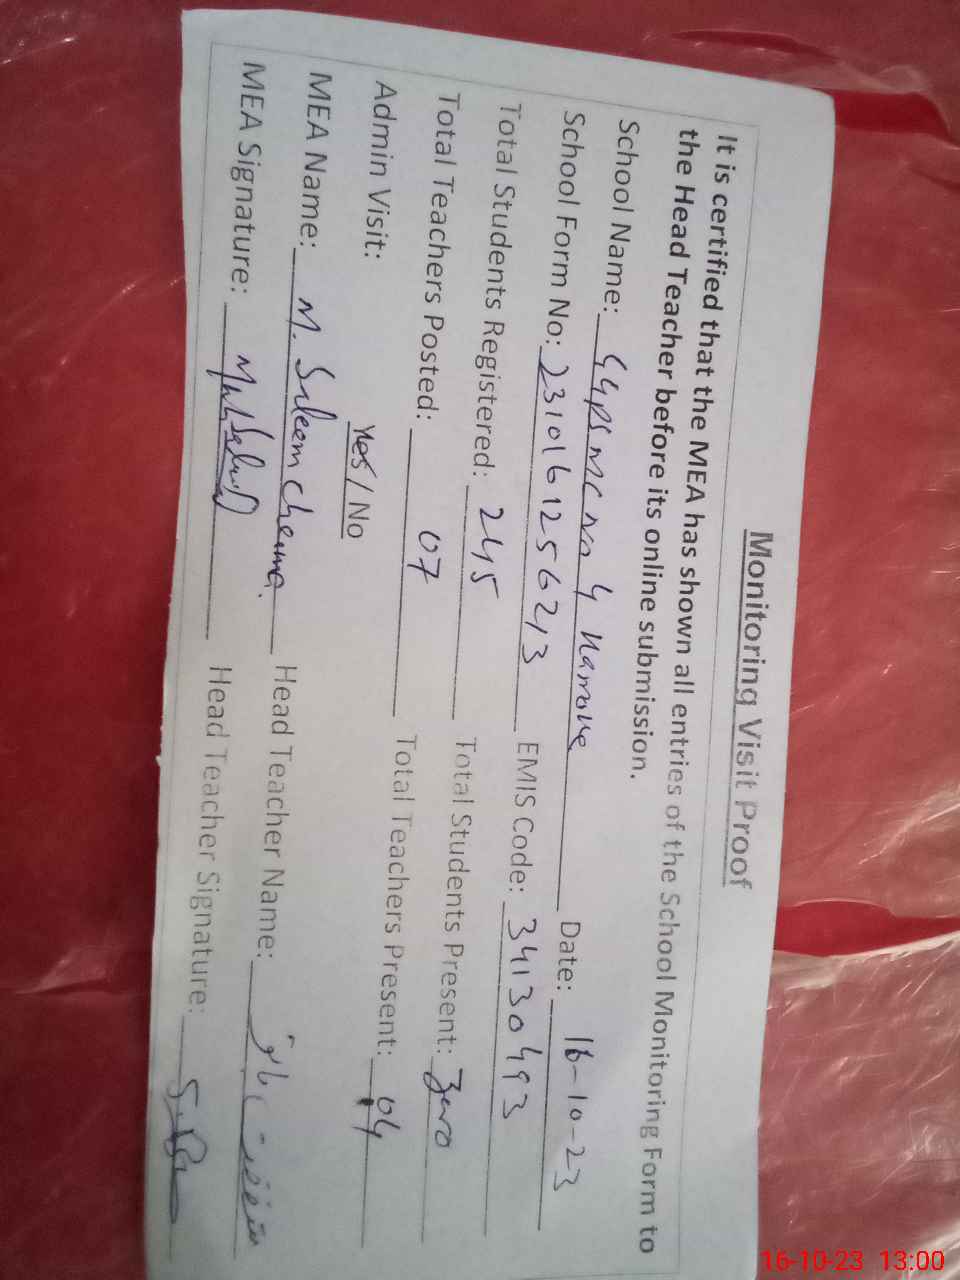 Monitoring Visit Proof
It is certified that the MEA has shown all entries of the School Monitoring Form to
the Head Teacher before its online submission.
School Name: GGPS MC No 4 Date: 16-10-23
School Form No: 2310161256213 EMIS Code: 34130493
Total Students Registered: 245 Total Students Present: Zero
Total Teachers Posted: 07 Total Teachers Present: 04
Admin Visit: Yes / No
MEA Name: M. Saleem Cheema. Head Teacher Name:
MEA Signature: Head Teacher Signature:
16-10-23 13:00